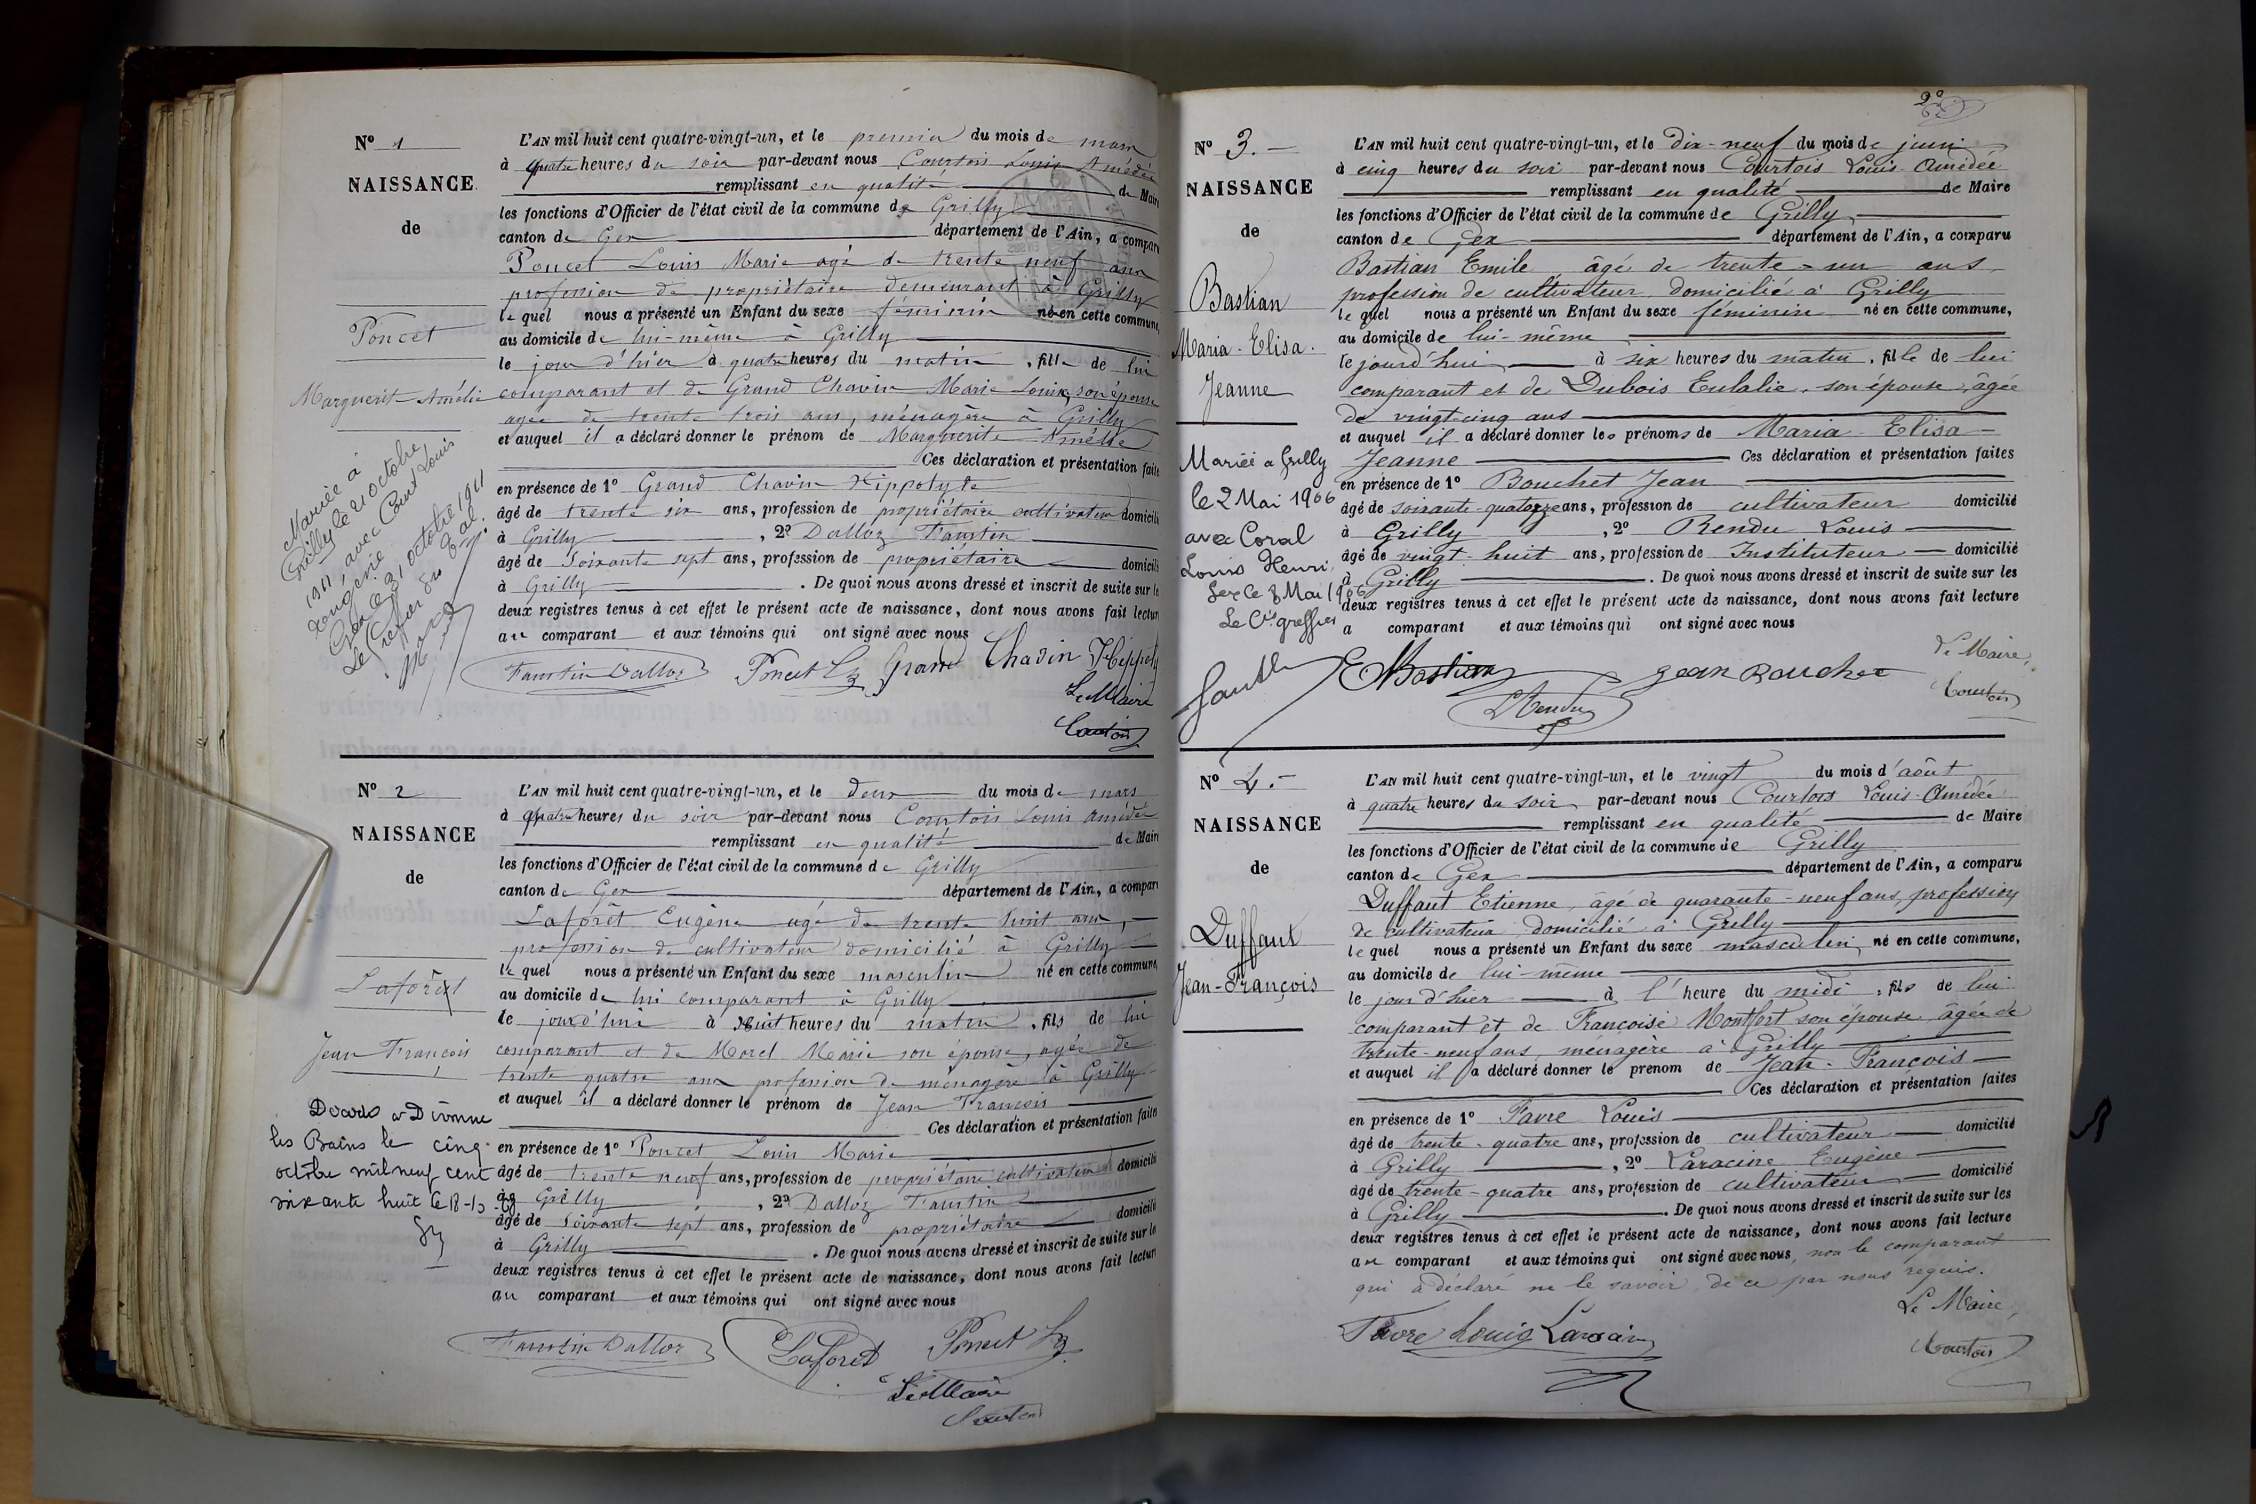 N° 1
NAISSANCE
de
Poncet
Marguerite Amélie
Mariée à
Grilly le 21 octobre
1911, avec
Gex le 31 octobre 1911
Le Greffier
L'AN mil huit cent quatre-vingt-un, et le premier du mois de mars
à quatre heures du soir par-devant nous Courtois Louis Amédée
remplissant en qualité de Maire
les fonctions d'Officier de l'état civil de la commune de Grilly
canton de Gex département de l'Ain, a comparu
Poncet Louis Marie agé de trente neuf ans
profession de propriétaire demeurant à Grilly
lequel nous a présenté un Enfant du sexe féminin né en cette commune,
au domicile de lui-même à Grilly
le jour d'hier à quatre heures du matin, fille de lui
comparant et de Grand Chavin Marie Louise, son épouse
agée de trente trois ans, ménagère à Grilly
et auquel il a déclaré donner le prénom de Marguerite Amélie
Ces déclaration et présentation faites
en présence de 1° Grand Chavin Hippolyte
âgé de trente six ans, profession de propriétaire cultivateur domicilié
à Grilly, 2° Dalloz Faustin
âgé de soixante sept ans, profession de propriétaire domicilié
à Grilly. De quoi nous avons dressé et inscrit de suite sur les
deux registres tenus à cet effet le présent acte de naissance, dont nous avons fait lecture
au comparant et aux témoins qui ont signé avec nous
Faustin Dalloz Poncet Grand Chavin Hippolyte
Le Maire
Courtois
N° 2
NAISSANCE
de
Laforêt
Jean François
Décédé à Divonne
les Bains le cinq
octobre mil neuf cent
soixante huit le 18-10
L'AN mil huit cent quatre-vingt-un, et le deux du mois de mars
à quatre heures du soir par-devant nous Courtois Louis Amédée
remplissant en qualité de Maire
les fonctions d'Officier de l'état civil de la commune de Grilly
canton de Gex département de l'Ain, a comparu
Laforêt Eugène agé de trente huit ans,
profession de cultivateur domicilié à Grilly
lequel nous a présenté un Enfant du sexe masculin né en cette commune,
au domicile de lui comparant à Grilly
le jourd'hui à huit heures du matin, fils de lui
comparant et de Morel Marie son épouse, agée de
trente quatre ans profession de ménagère à Grilly
et auquel il a déclaré donner le prénom de Jean François
Ces déclaration et présentation faites
en présence de 1° Poncet Louis Marie
âgé de trente neuf ans, profession de propriétaire cultivateur domicilié
à Grilly, 2° Dalloz Faustin
âgé de soixante sept ans, profession de propriétaire domicilié
à Grilly. De quoi nous avons dressé et inscrit de suite sur les
deux registres tenus à cet effet le présent acte de naissance, dont nous avons fait lecture
au comparant et aux témoins qui ont signé avec nous
Faustin Dalloz Laforet Poncet
Le Maire
Courtois
N° 3.
NAISSANCE
de
Bastian
Maria-Elisa.
Jeanne
Mariée a Grilly
le 2 Mai 1906
avec Coral
Louis Henri,
Gex le 8 Mai 1906
Le Cis greffier
L'AN mil huit cent quatre-vingt-un, et le dix-neuf du mois de juin
à cinq heures du soir par-devant nous Courtois Louis Amédée
remplissant en qualité de Maire
les fonctions d'Officier de l'état civil de la commune de Grilly
canton de Gex département de l'Ain, a comparu
Bastian Emile âgé de trente-un ans
profession de cultivateur domicilié à Grilly
lequel nous a présenté un Enfant du sexe féminin né en cette commune,
au domicile de lui-même
le jourd'hui à six heures du matin, fille de lui
comparant et de Dubois Eulalie, son épouse, âgée
de vingt-cinq ans
et auquel il a déclaré donner les prénoms de Maria Elisa
Jeanne Ces déclaration et présentation faites
en présence de 1° Bouchet Jean
âgé de soixante-quatorze ans, profession de cultivateur domicilié
à Grilly, 2° Rendu Louis
âgé de vingt-huit ans, profession de Instituteur domicilié
à Grilly. De quoi nous avons dressé et inscrit de suite sur les
deux registres tenus à cet effet le présent acte de naissance, dont nous avons fait lecture
a comparant et aux témoins qui ont signé avec nous
E Bastian Jean Bouchet Le Maire,
LRendu Courtois
N° 4.
NAISSANCE
de
Duffaut
Jean-François
L'AN mil huit cent quatre-vingt-un, et le vingt du mois d'août
à quatre heures du soir par-devant nous Courtois Louis Amédée
remplissant en qualité de Maire
les fonctions d'Officier de l'état civil de la commune de Grilly
canton de Gex département de l'Ain, a comparu
Duffaut Etienne, âgé de quarante-neuf ans, profession
de cultivateur domicilié à Grilly
lequel nous a présenté un Enfant du sexe masculin né en cette commune,
au domicile de lui-même
le jour d'hier à l'heure du midi, fils de lui
comparant et de Françoise Montfort son épouse âgée de
trente-neuf ans, ménagère à Grilly
et auquel il a déclaré donner le prénom de Jean-François
Ces déclaration et présentation faites
en présence de 1° Favre Louis
âgé de trente-quatre ans, profession de cultivateur domicilié
à Grilly, 2° Laracine Eugène
âgé de trente-quatre ans, profession de cultivateur domicilié
à Grilly. De quoi nous avons dressé et inscrit de suite sur les
deux registres tenus à cet effet le présent acte de naissance, dont nous avons fait lecture
au comparant et aux témoins qui ont signé avec nous, non le comparant
qui a déclaré ne le savoir de ce par nous requis.
Le Maire,
Favre Louis Laracine Courtois